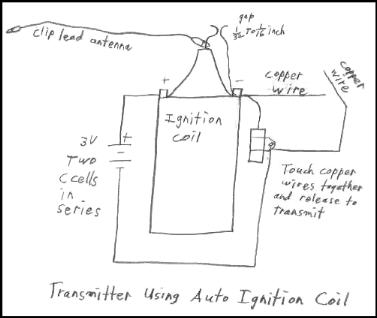 gap
1/32 to 1/16 inch
clip lead antenna
+
-
copper
wire
copper
wire
Ignition
coil
3V
+
Two
C cells
in
series
Touch copper
wires together
and release to
transmit
Transmitter Using Auto Ignition Coil